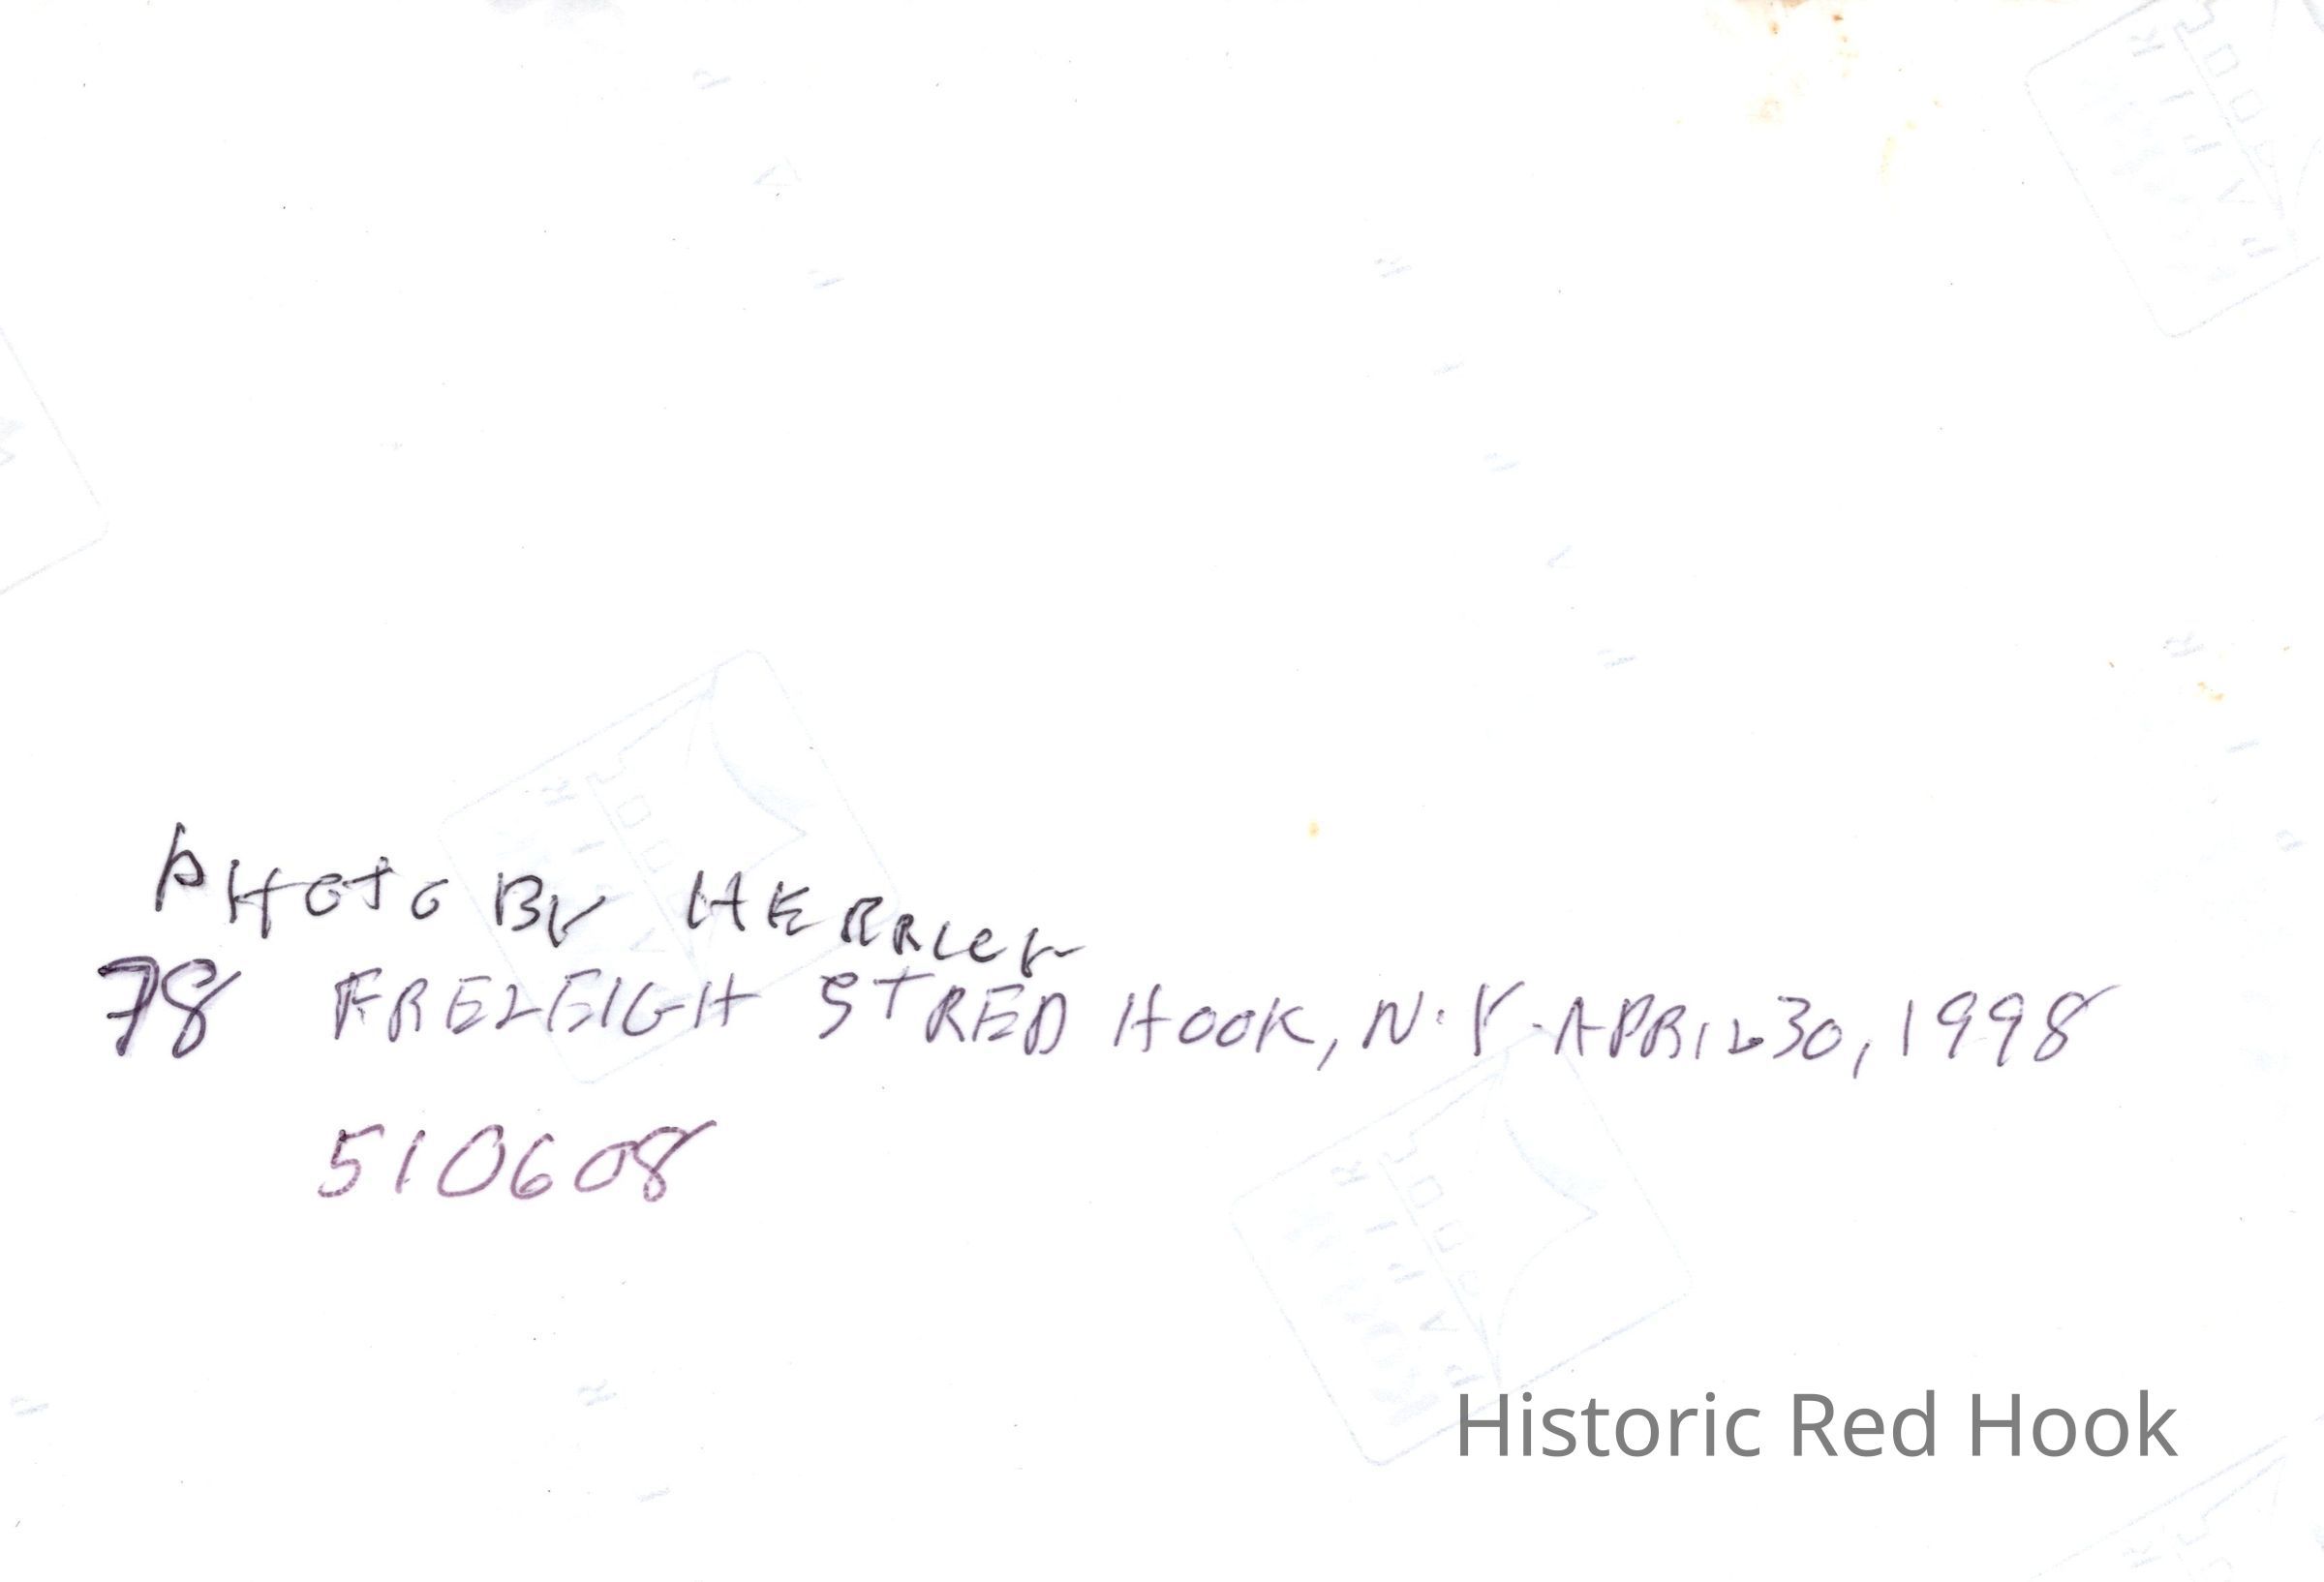 PHOTO BY HERRICK
78 FRELEIGH ST RED HOOK, N.Y. APRIL 30, 1998
510608
Historic Red Hook